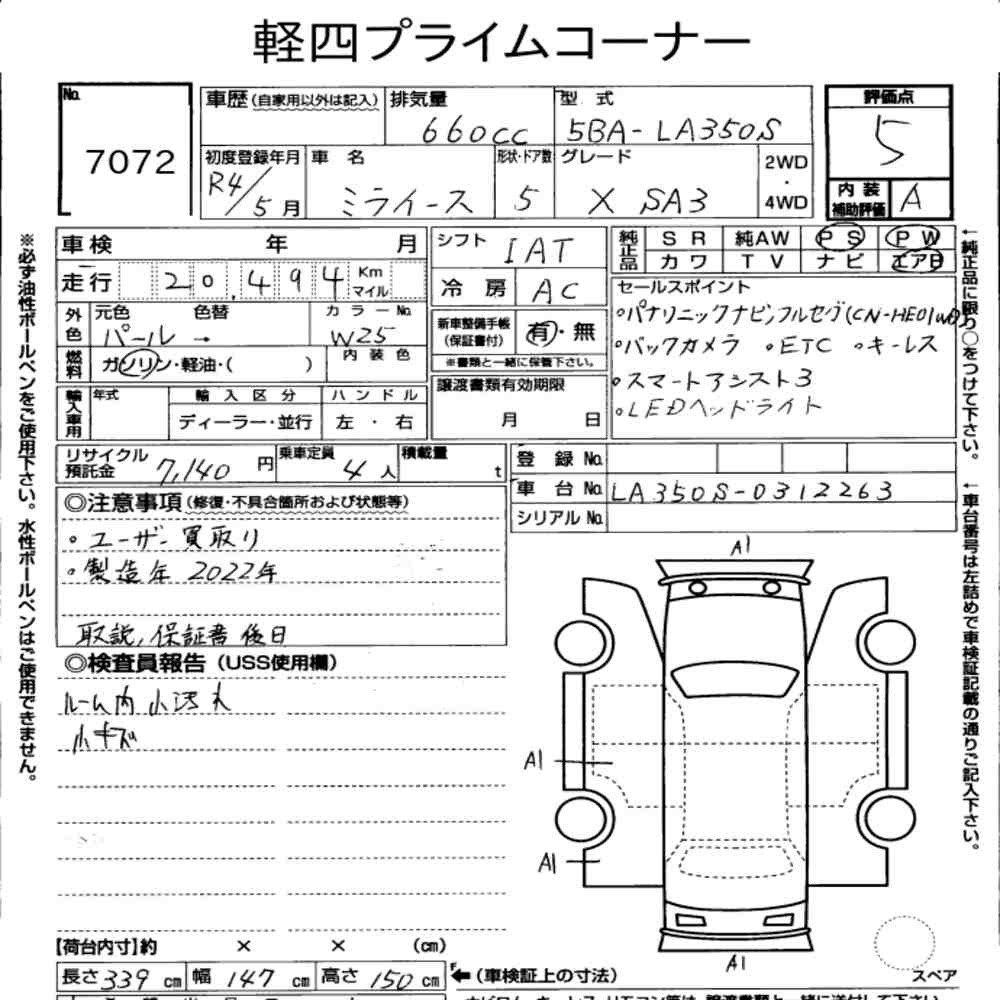 軽四プライムコーナー
No. 7072
車歴(自家用以外は記入) 排気量 660cc 型 式 5BA-LA350S
初度登録年月 R4/5月 車 名 ミライース 形状・ドア数 5 グレード X SA3 2WD・4WD
評価点 5
内装補助評価 A
車検 年 月
走行 20,494 Km マイル
外色 元色 パール → 色替 カラーNo. W25
燃料 ガソリン・軽油・( ) 内装色
輸入車用 年式 輸入区分 ディーラー・並行 ハンドル 左・右
シフト IAT
冷房 AC
新車整備手帳(保証書付) 有・無
※書類と一緒に保管下さい。
譲渡書類有効期限
月 日
純正品 SR 純AW PS PW
カワ TV ナビ エアB
セールスポイント
・パナソニックナビ,フルセグ(CN-HE01WD)
・バックカメラ ・ETC ・キーレス
・スマートアシスト3
・LEDヘッドライト
リサイクル預託金 7,140円 乗車定員 4人 積載量 t
登録No.
車台No. LA350S-0312263
シリアルNo.
◎注意事項(修復・不具合箇所および状態等)
・ユーザー買取り
・製造年 2022年
取説,保証書後日
◎検査員報告(USS使用欄)
ルーム内小汚れ
小キズ
A1
A1
A1
A1
スペア
【荷台内寸】約 × × (cm)
長さ339cm 幅147cm 高さ150cm
←(車検証上の寸法)
※必ず油性ボールペンをご使用下さい。水性ボールペンはご使用できません。
←純正品に限り○をつけて下さい。
←車台番号は左詰めで車検証記載の通りご記入下さい。